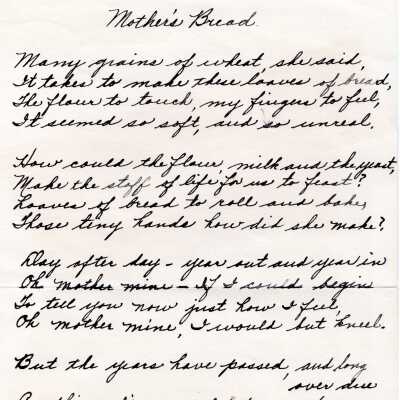 Mother's Bread
Many grains of wheat she said,
It takes to make these loaves of bread,
The flour to touch, my fingers to feel,
It seemed so soft, and so unreal.
How could the flour, milk and the yeast,
Make the staff of life, for us to feast?
Loaves of bread to roll and bake,
Those tiny hands how did she make?
Day after day - year out and year in
Oh mother mine - If I could begin
To tell you now just how I feel
Oh mother mine, I would but kneel.
But the years have passed, and long
over due